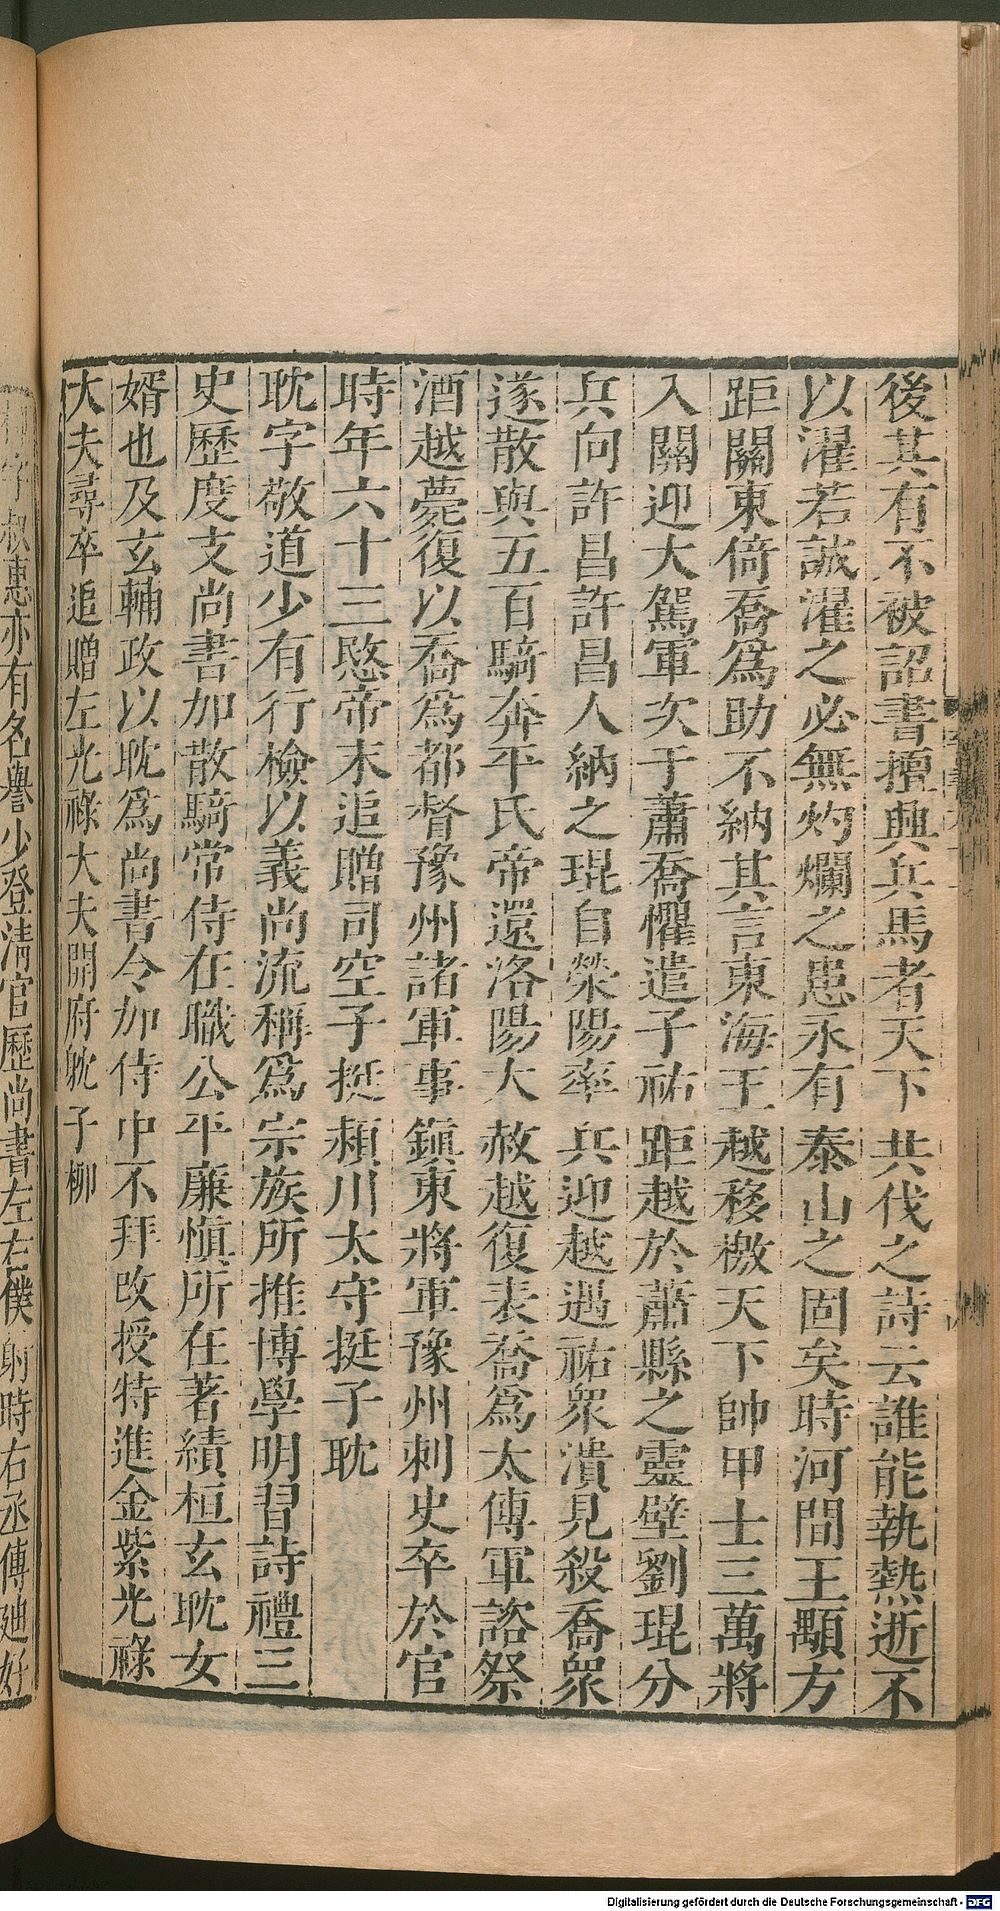 後其有不被詔書擅興兵馬者天下共伐之詩云誰能執熱逝不
以濯若誠濯之必無灼爛之患永有泰山之固矣時河間王顒方
距關東倚喬爲助不納其言東海王越移檄天下帥甲士三萬將
入關迎大駕軍次于蕭喬懼遣子祐距越於蕭縣之靈壁劉琨分
兵向許昌許昌人納之琨自滎陽率兵迎越遇祐衆潰見殺喬衆
遂散與五百騎奔平氏帝還洛陽大赦越復表喬爲太傅軍諮祭
酒越薨復以喬爲都督豫州諸軍事鎮東將軍豫州刺史卒於官
時年六十三愍帝末追贈司空子挺潁川太守挺子耽
耽字敬道少有行檢以義尚流稱爲宗族所推博學明習詩禮三
史歷度支尚書加散騎常侍在職公平廉慎所在著績桓玄耽女
婿也及玄輔政以耽爲尚書令加侍中不拜改授特進金紫光祿
大夫尋卒追贈左光祿大夫開府耽子柳
柳字叔惠亦有名譽少登清官歷尚書左右僕射時右丞傅廸好
Digitalisierung gefördert durch die Deutsche Forschungsgemeinschaft - DFG